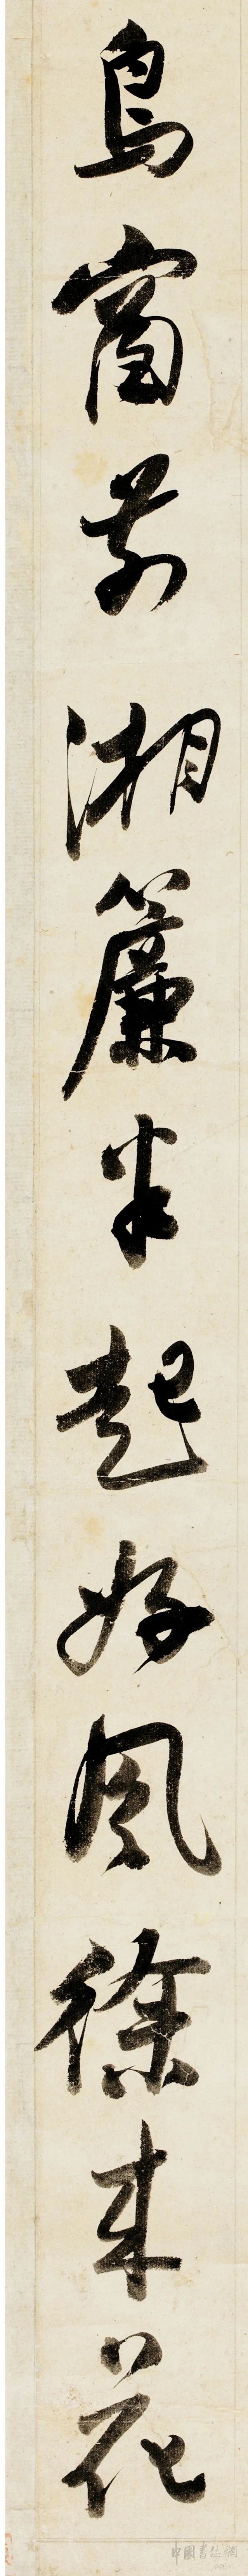 鳥窗前湘簾半起好風徐来花
中國書法網